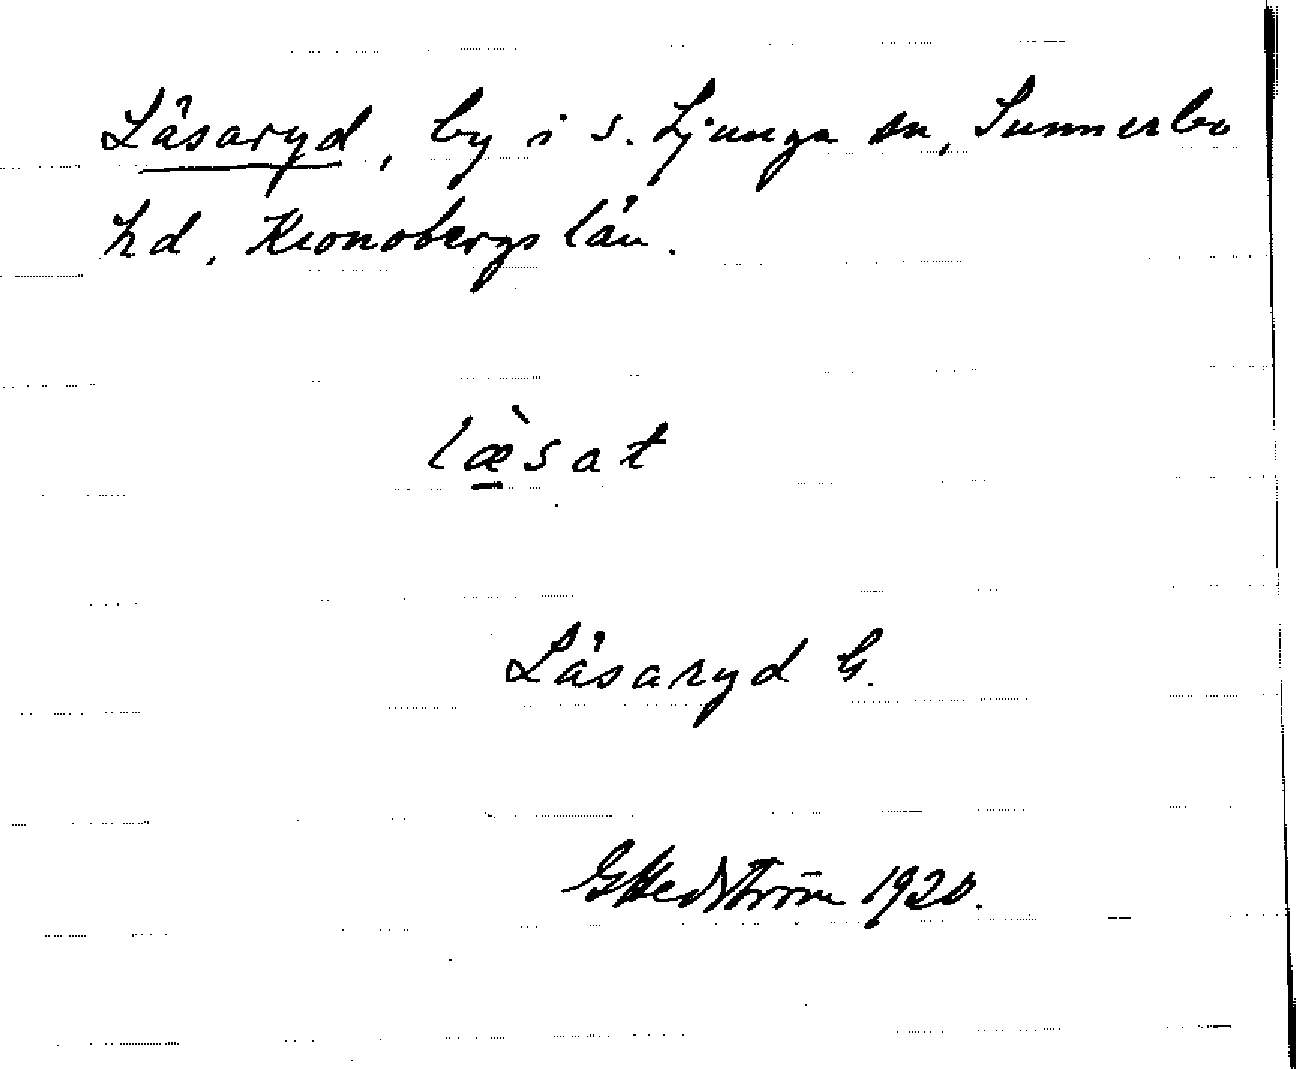 Läsaryd, by i S. Ljunga sn, Sunnerbo
hd, Kronobergs län.
læ̀sat
Läsaryd G.
G Hedström 1920.